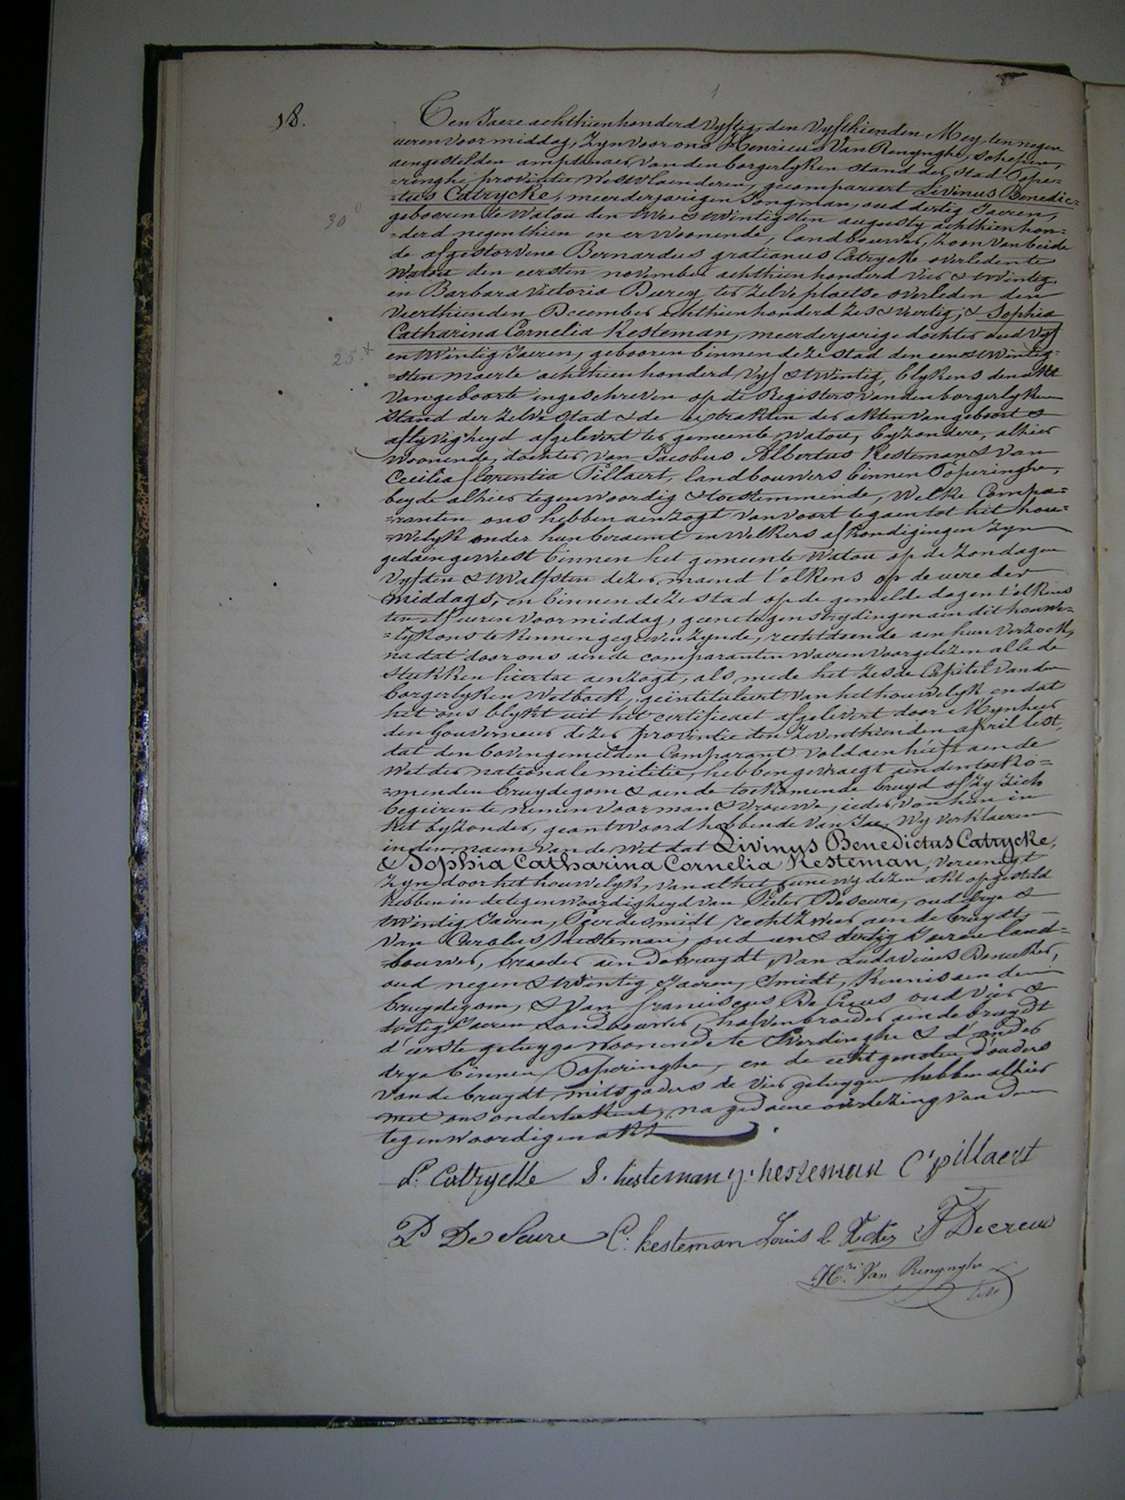 18.
Ten Jaere achthienhonderd vyftig, den vyfthienden Mey, ten negen
ueren voormiddag, Zyn voor ons Henricus Van Renynghe, schepen,
aengestelden amptenaer van den borgerlyken stand der stad Pope=
=ringhe, provintie Westvlaenderen, gecompareert Livinus Benedic=
=tus Catrycke, meerderjarigen Jongman, oud dertig Jaeren,
30
geboren te Watou den twee & twintigsten augusty achthienhon=
=derd negenthien en er woonende, landbouwer, zoon van beide
de afgestorvene Bernardus gratianus Catrycke overleden te
Watou den eersten november achthienhonderd vier & twintig,
en Barbara Victoria Durey, ter zelve plaetse overleden den
veerthienden December achthienhonderd zes & veertig; & Sophia
Catharina Cornelia Kesteman, meerderjarige dochter oud vyf
25
en twintig Jaeren, gebooren binnen deze stad den een & twintig=
=sten maerte achthienhonderd vyf & twintig, blykens den akt
van geboorte ingeschreven op de Registers van den borgerlyken
stand der zelve stad & de extrakten der akten van geboort &
aflyvigheyd afgelevert ter gemeente Watou, byzondere, alhier
woonende, dochter van Jacobus Albertus Kesteman & van
Cecilia florentia Pillaert, landbouwers binnen Poperinghe,
beyde alhier tegenwoordig & toestemmende, Welke Compa=
=ranten ons hebben aenzogt van voort te gaen tot het hou=
=welyk onder hun beraemt en welkers afkondigingen zyn
gedaen geweest binnen het gemeente Watou op de zondagen
vyfden & twalfsten dezer maend t'elkens op de uere der
middags, en binnen deze stad op de gemelde dagen t'elkens
ten elf ueren voormiddag, geene tegenstrydingen aen dit houwe=
=lyk ons te kennen gegeven zynde, rechtdoende aen hun verzoek,
na dat door ons aen de comparanten waeren voorgelezen alle de
stukken hiertoe aenzogt, als mede het zesde Capitel van den
borgerlyken Wetboek, geïntituleert van het houwelyk en dat
het ons blykt uit het certificaet afgelevert door Mynheer
den Gouverneur dezer provintie den zeventhienden april lest,
dat den bovengemelden Comparant voldaen heeft aen de
wet der nationale militie, hebben gevraegt aen den toeko=
=menden bruydegom & aen de toekomende bruyd of zy zich
begeirente nemen voor man & vrouwe, ieder van hun in
het byzonder, geantwoord hebbende van Jae, Wy verklaeren
in den naem van de Wet dat Livinus Benedictus Catrycke,
& Sophia Catharina Cornelia Kesteman, vereenigt
zyn door het houwelyk, van al het gene wy dezen akt opgesteld
hebben in de tegenwoordigheyd van Pieter Desceure, oud drye &
twintig Jaeren, smidt, rechtzweer aen de bruydt,
van Carolus Kesteman, oud een & dertig Jaeren land=
=bouwer, broeder aen de bruydt, van Ludovicus
oud negen & twintig Jaeren, Smidt, kennis aen den
bruydegom, & van franciscus De Creus oud vier &
Jaeren Landbouwer, halven broeder aen de bruydt
d'eerste getuyge woonende te Proven & d'ander
drye binnen Poperinghe, en de echtgenoten d'ouders
van de bruydt, mitsgaders de vier getuygen hebben alhier
met ons onderteekent, na gedaene overlezing van den
tegenwoordigen akt
L. Catrycke S. kesteman J. kesteman C pillaert
P De Seure C. kesteman Louis F Decreus
Hri Van Renynghe